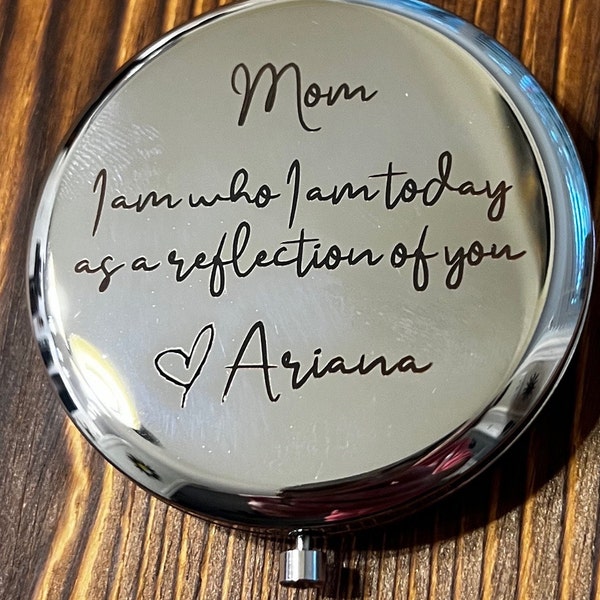 Mom
I am who I am today
as a reflection of you
♡ Ariana